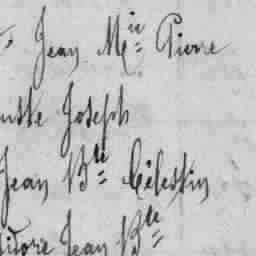 Jean M.ie Pierre
Joseph
Jean Bte Célestin
Jean Bte